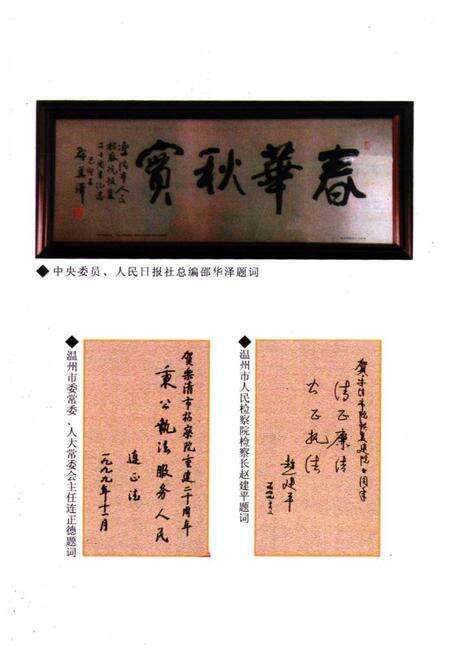 春華秋實
樂清市人民
檢察院恢復
二十周年紀念
己卯冬
邵华泽
◆中央委员、人民日报社总编邵华泽题词
◆温州市委常委、人大常委会主任连正德题词
贺乐清市检察院重建二十周年
秉公执法服务人民
连正德
一九九九年十一月
◆温州市人民检察院检察长赵建平题词
清正廉洁
公正执法
赵建平